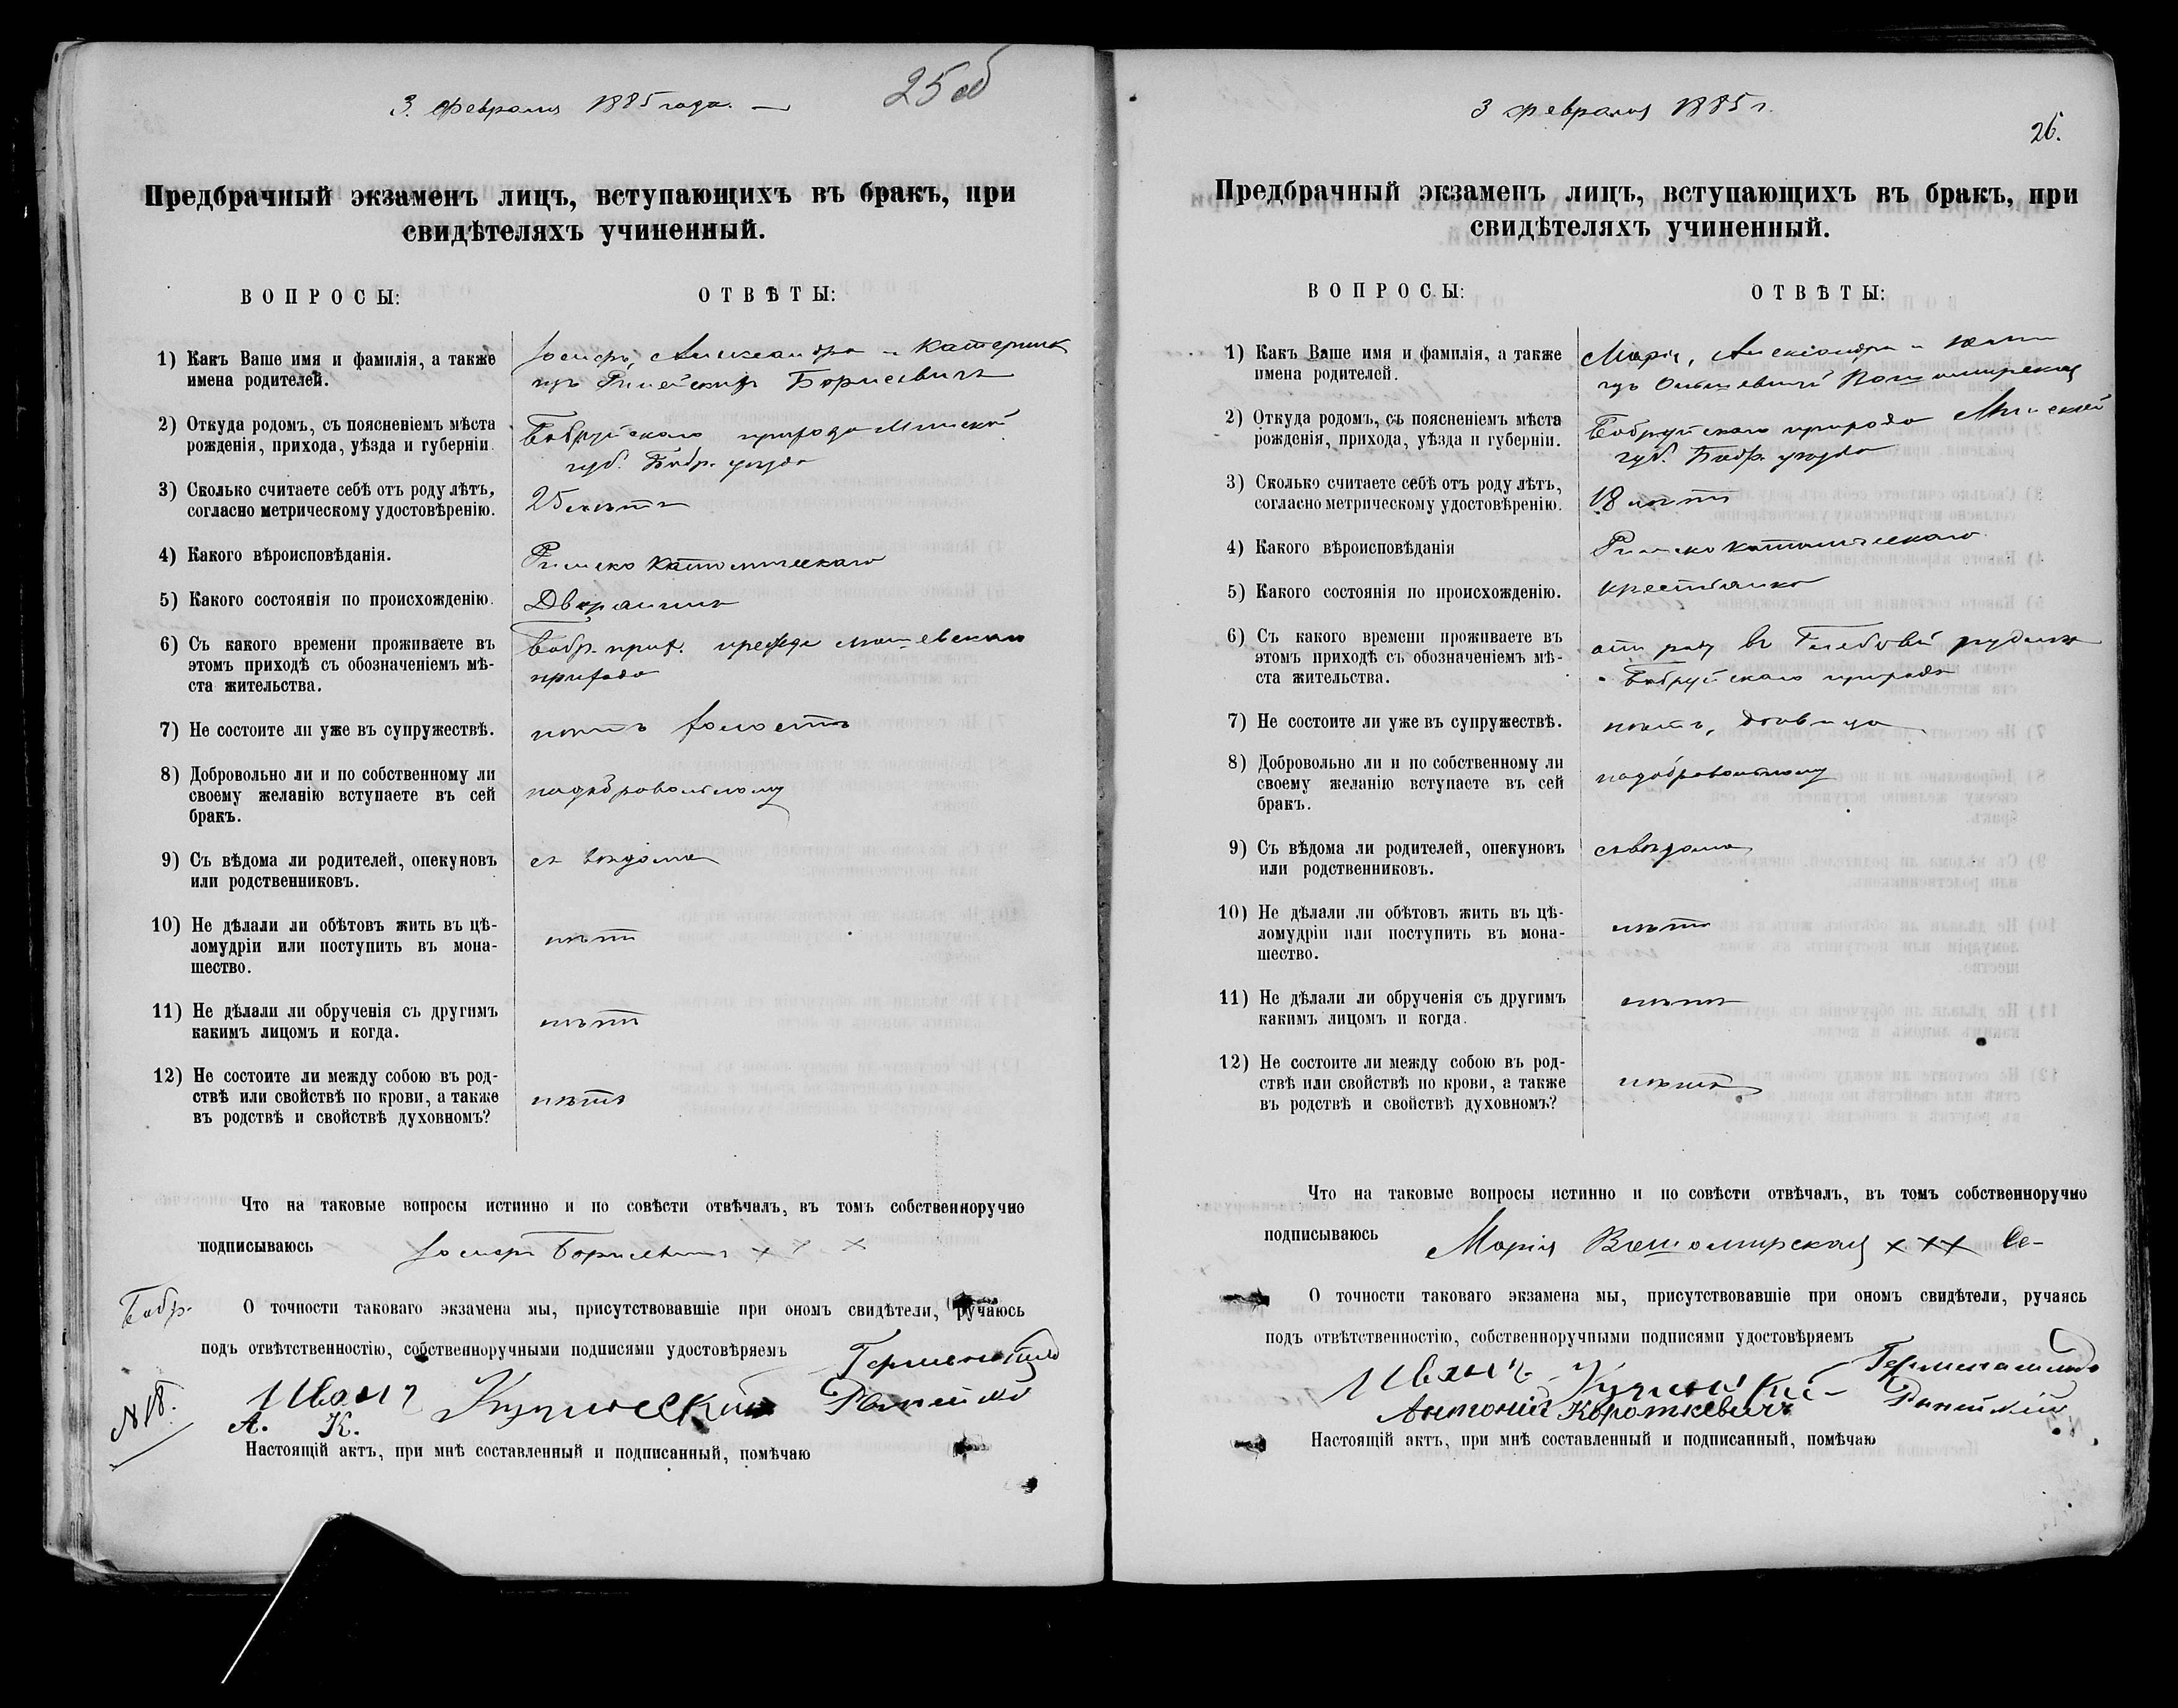 3. февраля 1885 года. —
25 об
Предбрачный экзаменъ лицъ, вступающихъ въ бракъ, при
свидѣтеляхъ учиненный.
ВОПРОСЫ:
ОТВѢТЫ:
1) Какъ Ваше имя и фамилія, а также
имена родителей.
Іосифъ, Александра и Катерины
изъ Борисевичъ
2) Откуда родомъ, съ поясненіемъ мѣста
рожденія, прихода, уѣзда и губерніи.
Бобруйскаго прихода Минской
губ. Бобр. уѣзда
3) Сколько считаете себѣ отъ роду лѣтъ,
согласно метрическому удостовѣренію.
25 лѣтъ
4) Какого вѣроисповѣданія.
Римско Католическаго
5) Какого состоянія по происхожденію.
Дворянинъ
6) Съ какого времени проживаете въ
этомъ приходѣ съ обозначеніемъ мѣ-
ста жительства.
Бобр. прих. прежде
прихода
7) Не состоите ли уже въ супружествѣ.
нѣтъ холостъ
8) Добровольно ли и по собственному ли
своему желанію вступаете въ сей
бракъ.
подобровольному
9) Съ вѣдома ли родителей, опекуновъ
или родственниковъ.
съ вѣдома
10) Не дѣлали ли обѣтовъ жить въ цѣ-
ломудріи или поступить въ мона-
шество.
нѣтъ
11) Не дѣлали ли обрученія съ другимъ
какимъ лицомъ и когда.
нѣтъ
12) Не состоите ли между собою въ род-
ствѣ или свойствѣ по крови, а также
въ родствѣ и свойствѣ духовномъ?
нѣтъ
Что на таковые вопросы истинно и по совѣсти отвѣчалъ, въ томъ собственноручно
подписываюсь Іосифъ Борисевичъ × × ×
Бобр.
О точности таковаго экзамена мы, присутствовавшіе при ономъ свидѣтели, ручаюсь
подъ отвѣтственностію, собственноручными подписями удостовѣряемъ
Иванъ
А. К.
№ 18.
Настоящій актъ, при мнѣ составленный и подписанный, помѣчаю
3 февраля 1885 г.
26.
Предбрачный экзаменъ лицъ, вступающихъ въ бракъ, при
свидѣтеляхъ учиненный.
ВОПРОСЫ:
ОТВѢТЫ:
1) Какъ Ваше имя и фамилія, а также
имена родителей.
Марія, Александра и
изъ
2) Откуда родомъ, съ поясненіемъ мѣста
рожденія, прихода, уѣзда и губерніи.
Бобруйскаго прихода Минской
губ. Бобр. уѣзда
3) Сколько считаете себѣ отъ роду лѣтъ,
согласно метрическому удостовѣренію.
18 лѣтъ
4) Какого вѣроисповѣданія
Римско католическаго
5) Какого состоянія по происхожденію.
крестьянка
6) Съ какого времени проживаете въ
этомъ приходѣ съ обозначеніемъ мѣ-
ста жительства.
отъ роду въ Глебовой рудни
Бобруйскаго прихода
7) Не состоите ли уже въ супружествѣ.
нѣтъ, дѣвица
8) Добровольно ли и по собственному ли
своему желанію вступаете въ сей
бракъ.
подобровольному
9) Съ вѣдома ли родителей, опекуновъ
или родственниковъ.
съ вѣдома
10) Не дѣлали ли обѣтовъ жить въ цѣ-
ломудріи или поступить въ мона-
шество.
нѣтъ
11) Не дѣлали ли обрученія съ другимъ
какимъ лицомъ и когда.
нѣтъ
12) Не состоите ли между собою въ род-
ствѣ или свойствѣ по крови, а также
въ родствѣ и свойствѣ духовномъ?
нѣтъ
Что на таковые вопросы истинно и по совѣсти отвѣчалъ, въ томъ собственноручно
подписываюсь Марія × × ×
О точности таковаго экзамена мы, присутствовавшіе при ономъ свидѣтели, ручаясь
подъ отвѣтственностію, собственноручными подписями удостовѣряемъ
Иванъ
Антоній Короткевичъ
Настоящій актъ, при мнѣ составленный и подписанный, помѣчаю